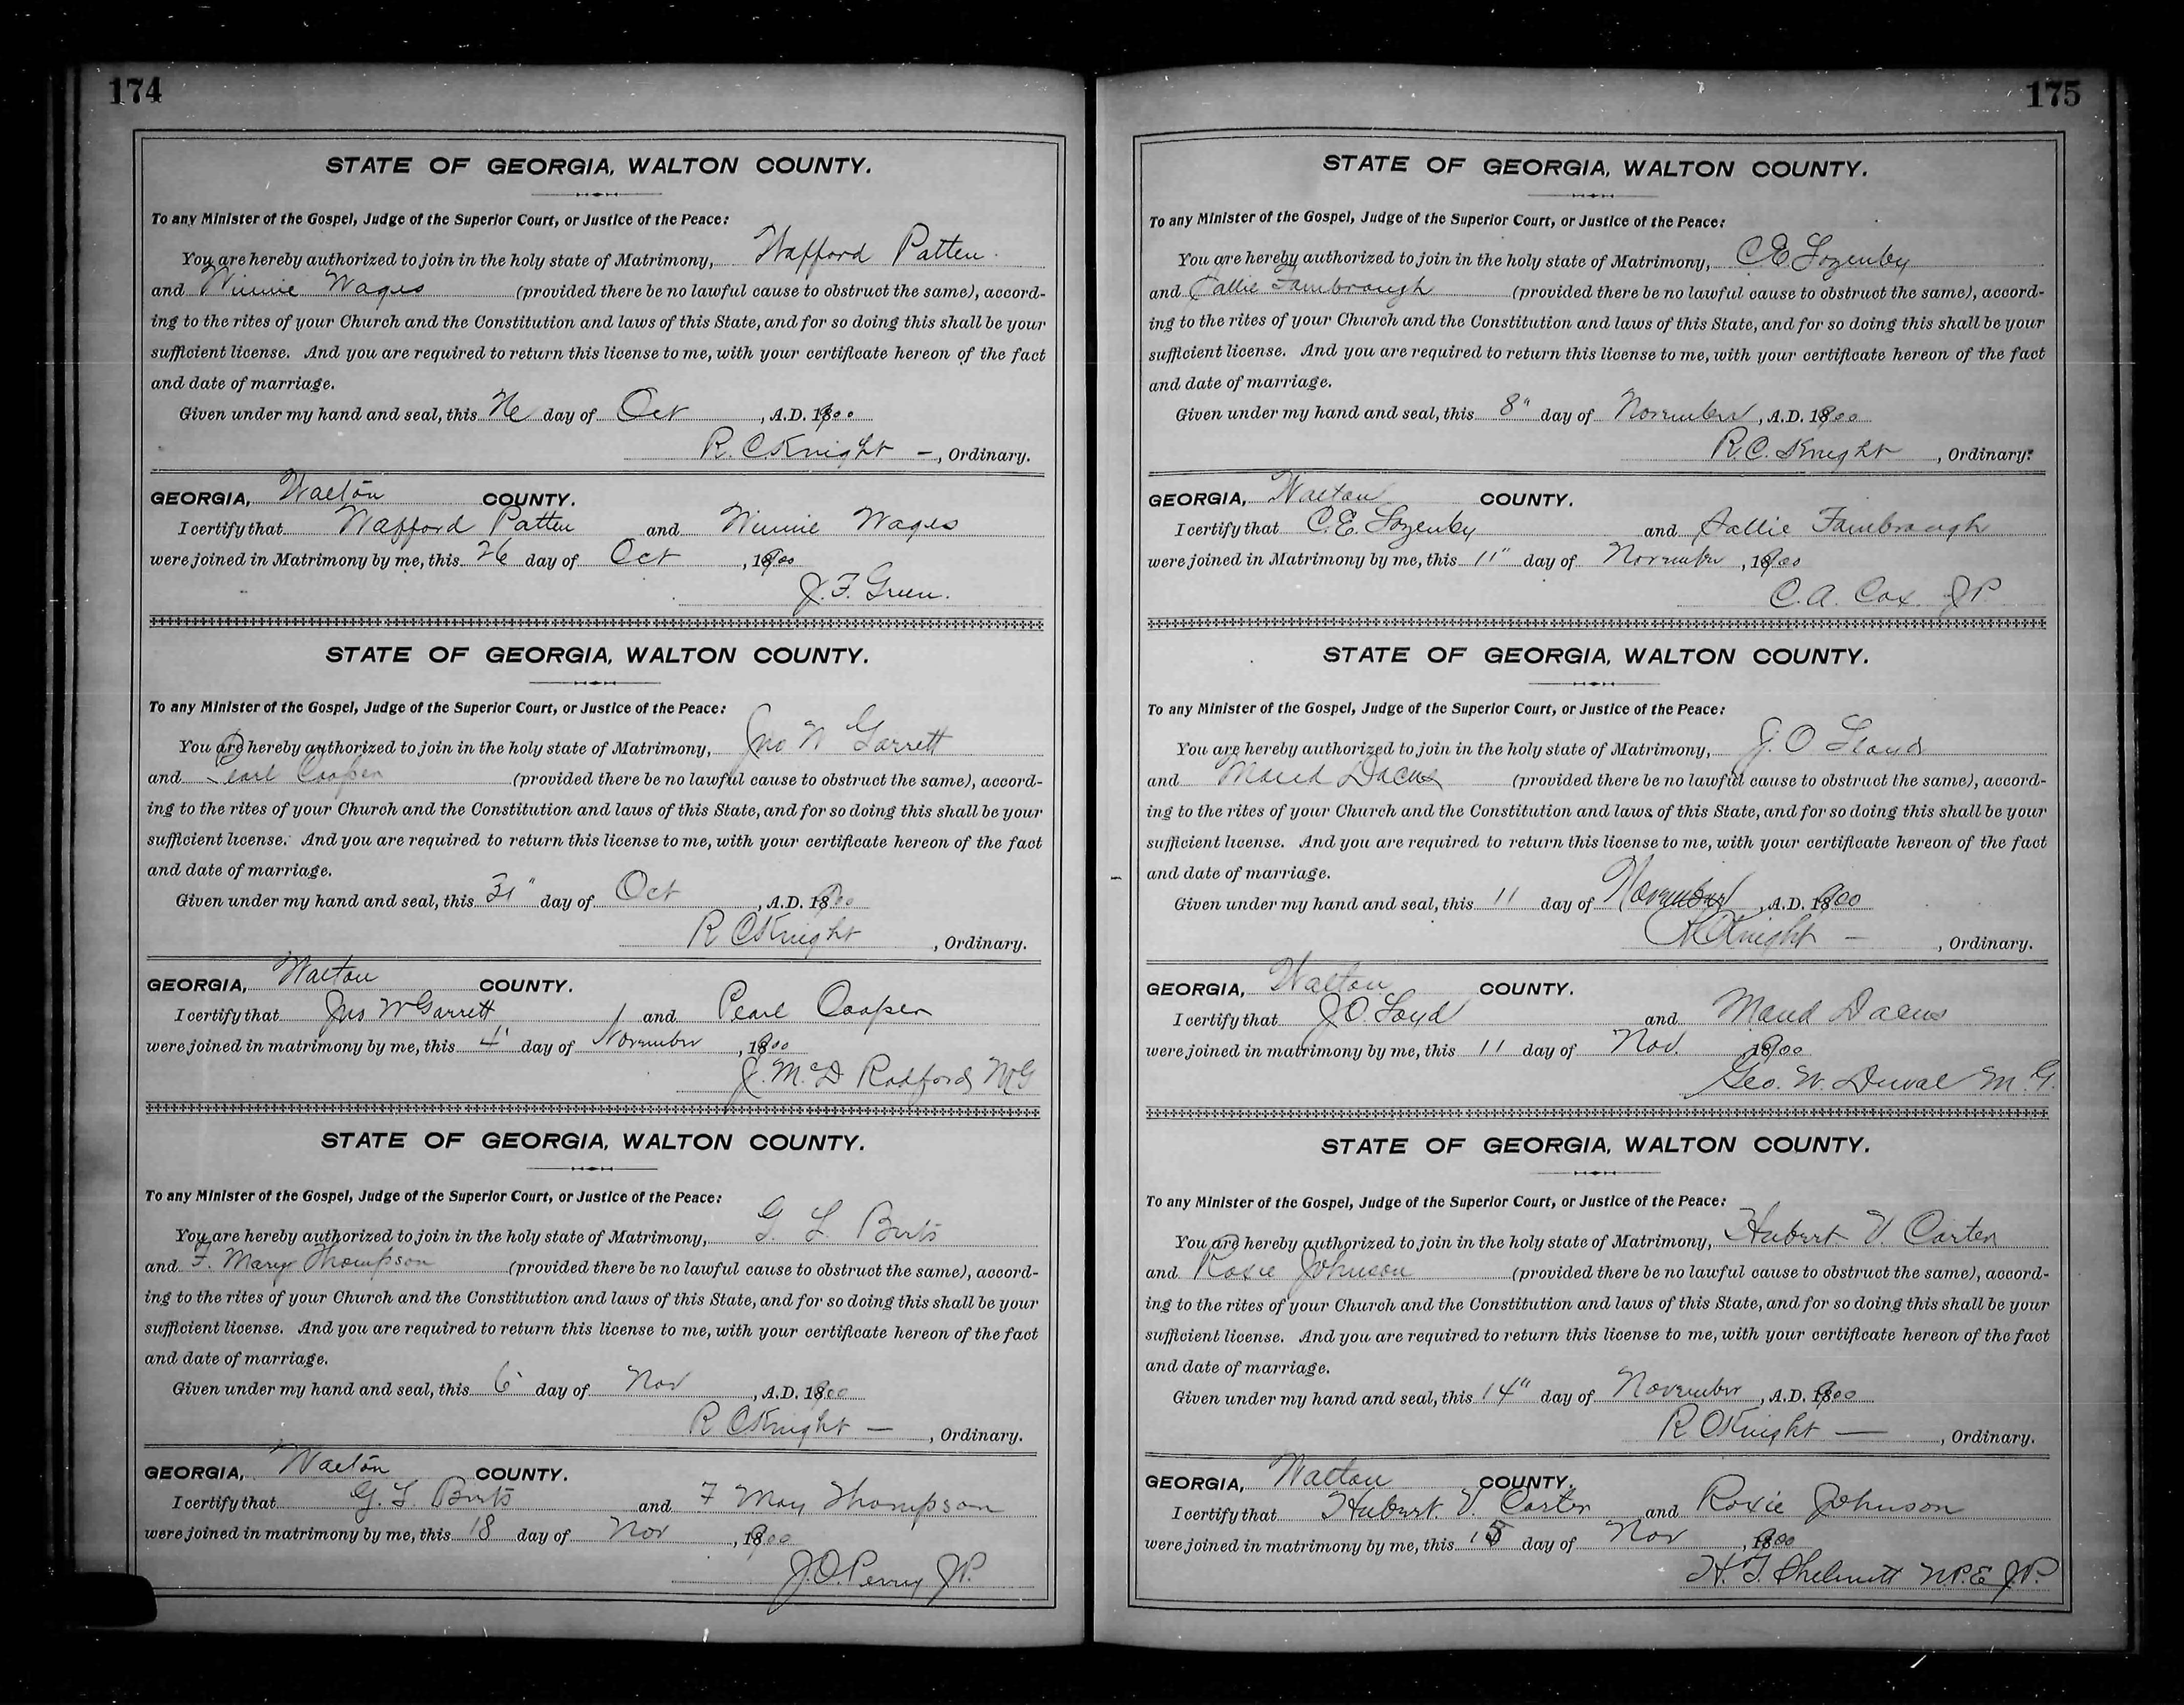 174
STATE OF GEORGIA, WALTON COUNTY.
To any Minister of the Gospel, Judge of the Superior Court, or Justice of the Peace:
You are hereby authorized to join in the holy state of Matrimony, Wafford Patten
and Winnie Wages (provided there be no lawful cause to obstruct the same), accord-
ing to the rites of your Church and the Constitution and laws of this State, and for so doing this shall be your
sufficient license. And you are required to return this license to me, with your certificate hereon of the fact
and date of marriage.
Given under my hand and seal, this 26 day of Oct, A.D. 1900
R. C. Knight —, Ordinary.
GEORGIA, Walton COUNTY.
I certify that Wafford Patten and Winnie Wages
were joined in Matrimony by me, this 26 day of Oct, 1900
J. F. Green.
STATE OF GEORGIA, WALTON COUNTY.
To any Minister of the Gospel, Judge of the Superior Court, or Justice of the Peace:
You are hereby authorized to join in the holy state of Matrimony, Jno W Garrett
and Pearl Cooper (provided there be no lawful cause to obstruct the same), accord-
ing to the rites of your Church and the Constitution and laws of this State, and for so doing this shall be your
sufficient license. And you are required to return this license to me, with your certificate hereon of the fact
and date of marriage.
Given under my hand and seal, this 31" day of Oct, A.D. 1900
R C Knight, Ordinary.
GEORGIA, Walton COUNTY.
I certify that Jno W Garrett and Pearl Cooper
were joined in matrimony by me, this 4" day of November, 1900
J. McD Radford MG
STATE OF GEORGIA, WALTON COUNTY.
To any Minister of the Gospel, Judge of the Superior Court, or Justice of the Peace:
You are hereby authorized to join in the holy state of Matrimony, G. L. Buts
and F. Mary Thompson (provided there be no lawful cause to obstruct the same), accord-
ing to the rites of your Church and the Constitution and laws of this State, and for so doing this shall be your
sufficient license. And you are required to return this license to me, with your certificate hereon of the fact
and date of marriage.
Given under my hand and seal, this 6 day of Nov, A.D. 1900
R C Knight —, Ordinary.
GEORGIA, Walton COUNTY.
I certify that G. L. Buts and F May Thompson
were joined in matrimony by me, this 18 day of Nov, 1900
J. O. Perry JP.
175
STATE OF GEORGIA, WALTON COUNTY.
To any Minister of the Gospel, Judge of the Superior Court, or Justice of the Peace:
You are hereby authorized to join in the holy state of Matrimony, C. E. Lozenby
and Sallie Fambrough (provided there be no lawful cause to obstruct the same), accord-
ing to the rites of your Church and the Constitution and laws of this State, and for so doing this shall be your
sufficient license. And you are required to return this license to me, with your certificate hereon of the fact
and date of marriage.
Given under my hand and seal, this 8" day of November, A.D. 1900
R. C. Knight, Ordinary.
GEORGIA, Walton COUNTY.
I certify that C. E. Lozenby and Sallie Fambrough
were joined in Matrimony by me, this 11" day of November, 1900
C. A. Cox JP
STATE OF GEORGIA, WALTON COUNTY.
To any Minister of the Gospel, Judge of the Superior Court, or Justice of the Peace:
You are hereby authorized to join in the holy state of Matrimony, J. O. Lloyd
and Maud Dacus (provided there be no lawful cause to obstruct the same), accord-
ing to the rites of your Church and the Constitution and laws of this State, and for so doing this shall be your
sufficient license. And you are required to return this license to me, with your certificate hereon of the fact
and date of marriage.
Given under my hand and seal, this 11 day of November, A.D. 1900
R C Knight —, Ordinary.
GEORGIA, Walton COUNTY.
I certify that J. O. Loyd and Maud Dacus
were joined in matrimony by me, this 11 day of Nov. 1900
Geo. W. Duval M. G.
STATE OF GEORGIA, WALTON COUNTY.
To any Minister of the Gospel, Judge of the Superior Court, or Justice of the Peace:
You are hereby authorized to join in the holy state of Matrimony, Hubert V. Carter
and Roxie Johnson (provided there be no lawful cause to obstruct the same), accord-
ing to the rites of your Church and the Constitution and laws of this State, and for so doing this shall be your
sufficient license. And you are required to return this license to me, with your certificate hereon of the fact
and date of marriage.
Given under my hand and seal, this 14" day of November, A.D. 1900
R C Knight —, Ordinary.
GEORGIA, Walton COUNTY.
I certify that Hubert. V. Carter and Roxie Johnson
were joined in matrimony by me, this 15 day of Nov, 1900
H. T. Shelnutt N.P.E J.P.